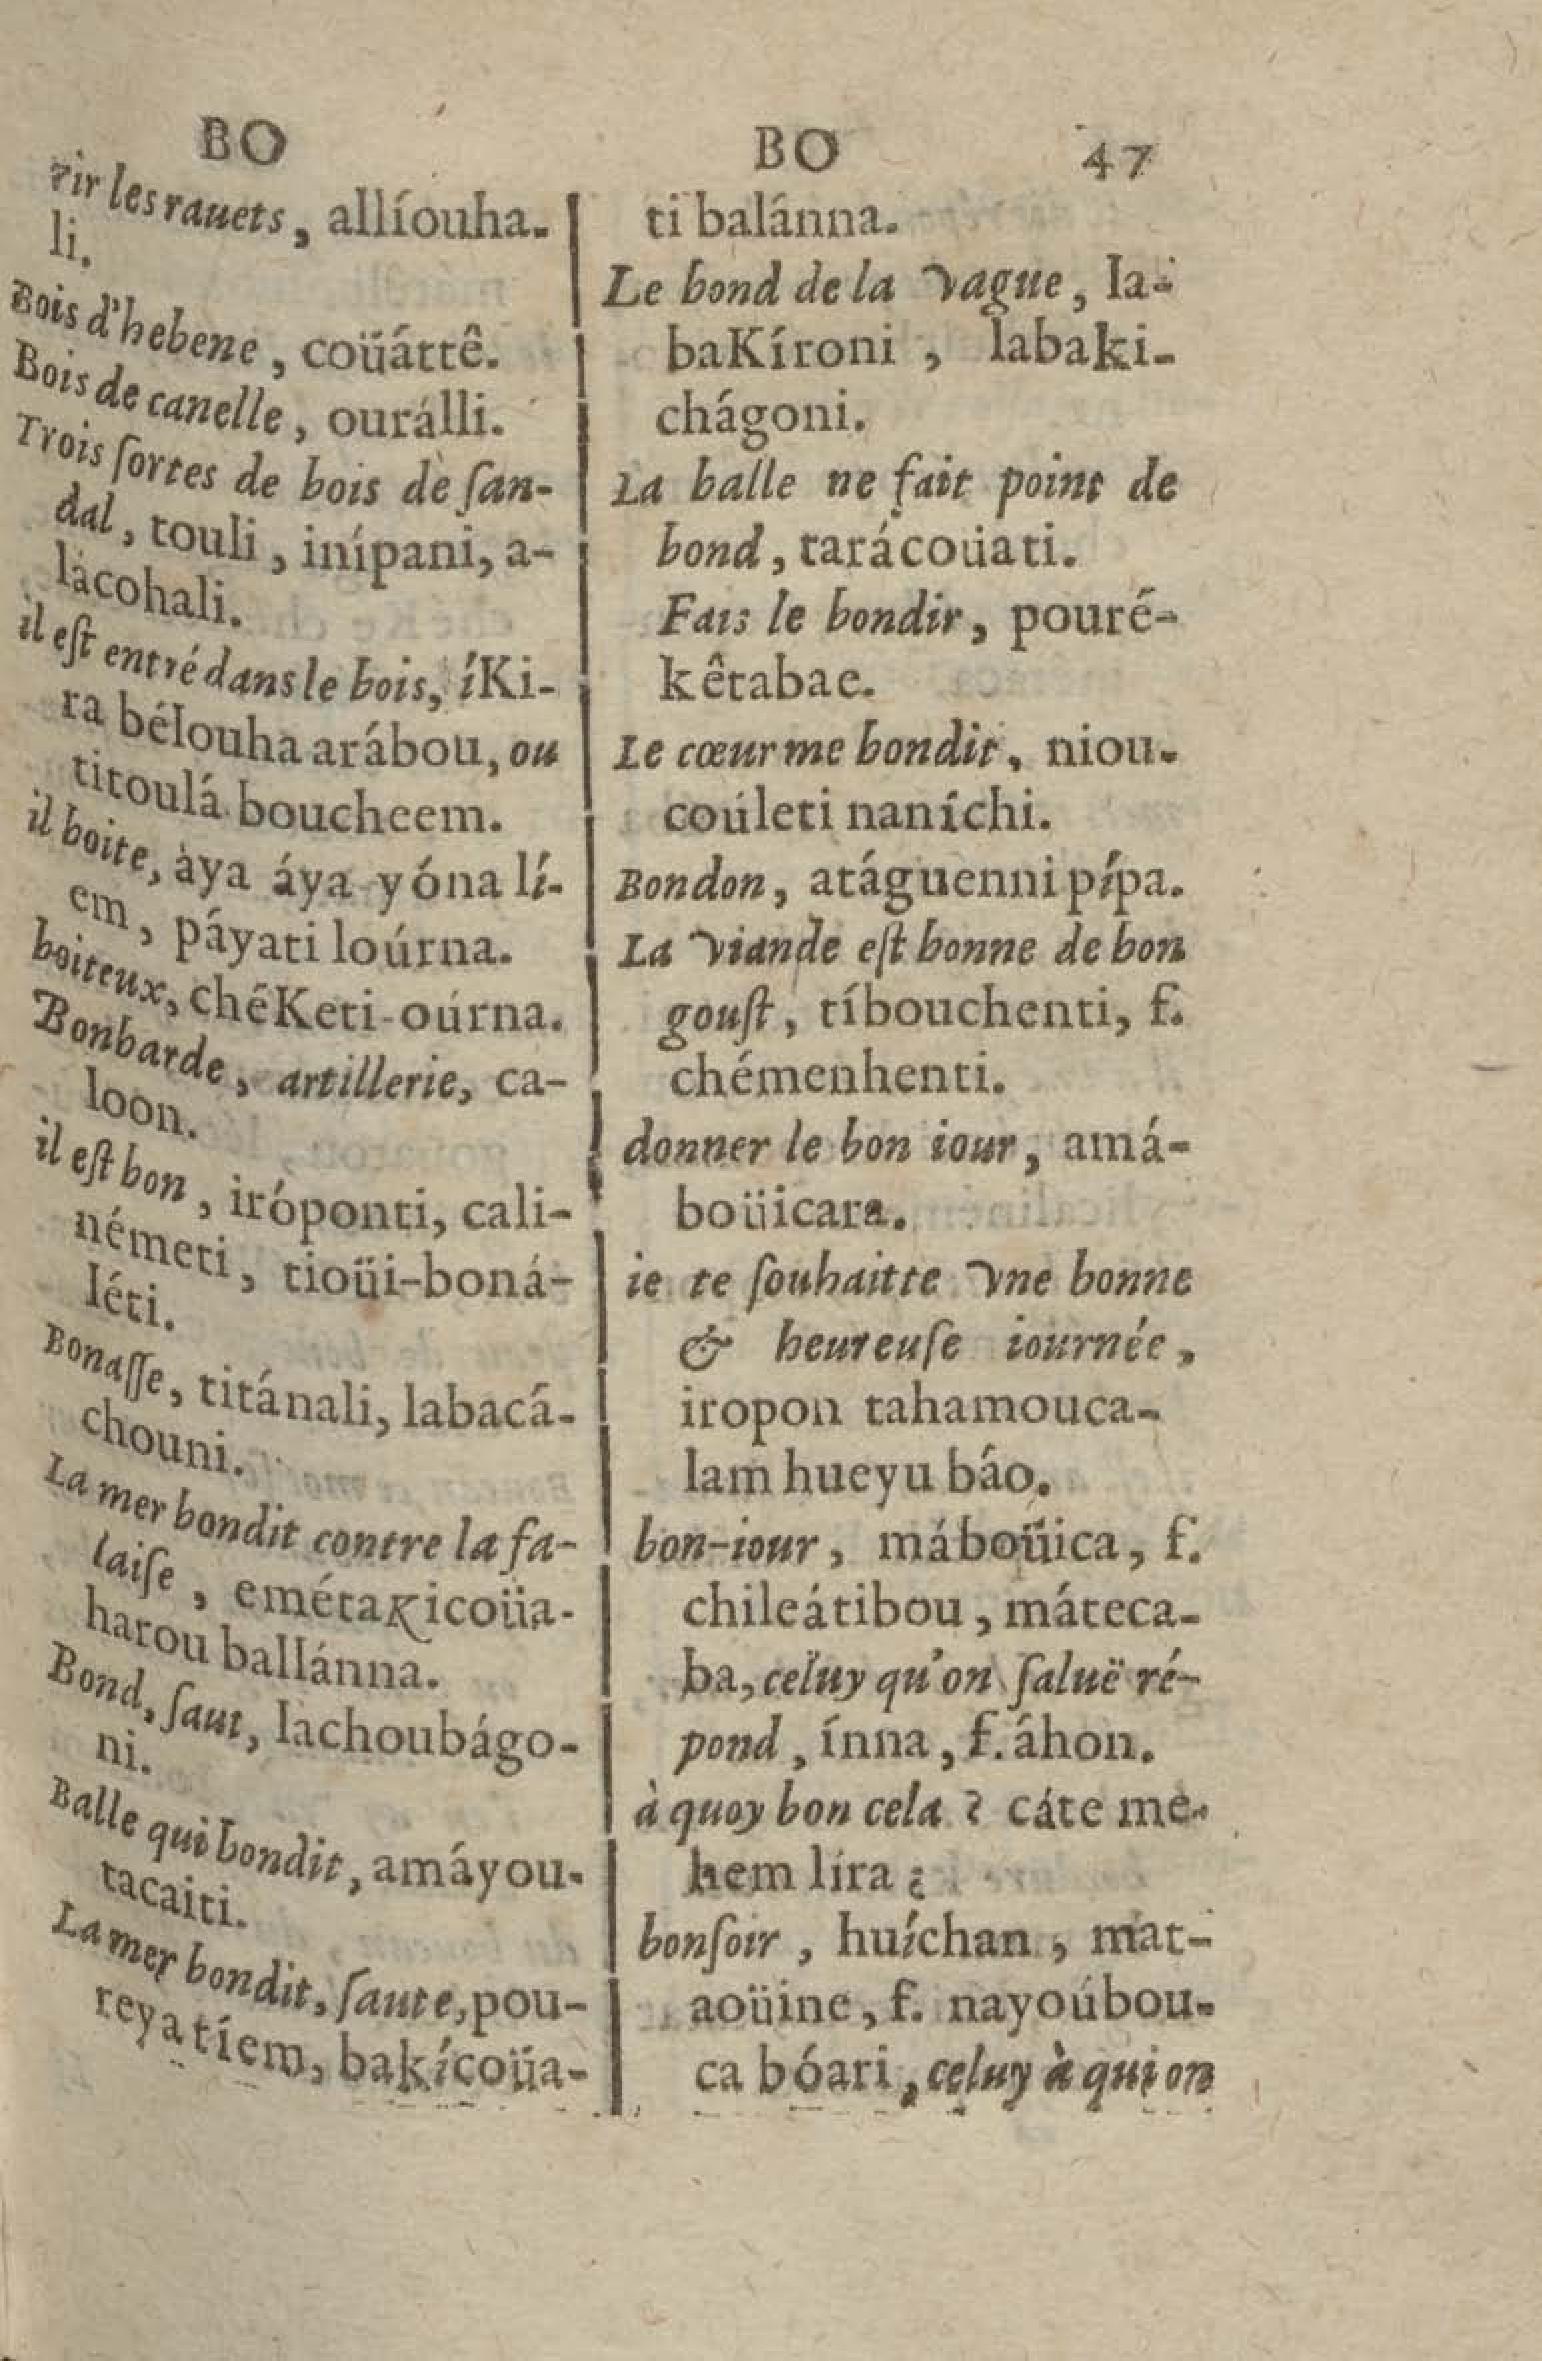 BO
rir les rauets, allíouha-
li.
Bois d'hebene, coüáttê.
Bois de canelle, ourálli.
Trois ſortes de bois de ſan-
dal, touli, inípani, a-
lácohali.
il eſt entré dans le bois, íKi-
ra bélouha arábou, ou
titoulá boucheem.
il boite, àya áya yóna lí-
em, páyati loúrna.
boiteux, chéKeti-oúrna.
Bonbarde, artillerie, ca-
loon.
il eſt bon, iróponti, cali-
németi, tioüi-boná-
léti.
Bonaſſe, titánali, labacá-
chouni.
La mer bondit contre la fa-
laiſe, emétaKicoüa-
harou ballánna.
Bond, ſaut, lachoubágo-
ni.
Balle qui bondit, amáyou-
tacaiti.
La mer bondit, ſaute, pou-
reyatíem, bakícoüa-
BO 47
ti balánna.
Le bond de la vague, la-
baKíroni, labaki-
chágoni.
La balle ne fait point de
bond, tarácoüati.
Fais le bondir, pouré-
kêtabae.
Le cœur me bondit, niou-
coúleti naníchi.
Bondon, atáguenni pípa.
La viande eſt bonne de bon
gouſt, tíbouchenti, f.
chémenhenti.
donner le bon iour, amá-
boüicara.
ie te ſouhaitte vne bonne
& heureuſe iournée,
iropon tahamouca-
lam hueyu báo.
bon-iour, máboüica, f.
chileátibou, máteca-
ba, celuy qu'on ſaluë ré-
pond, ínna, f. áhon.
à quoy bon cela? cáte me-
hem líra?
bonſoir, huíchan, mat-
aoüine, f. nayoúbou-
ca bóari, celuy à qui on